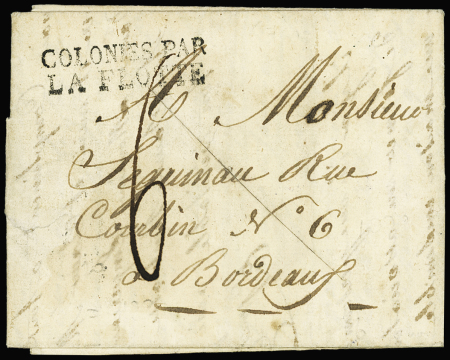 COLONIES PAR
LA FLOTTE
A Monsieur
Seguinau Rue
Courbin N° 6
6
a Bordeaux